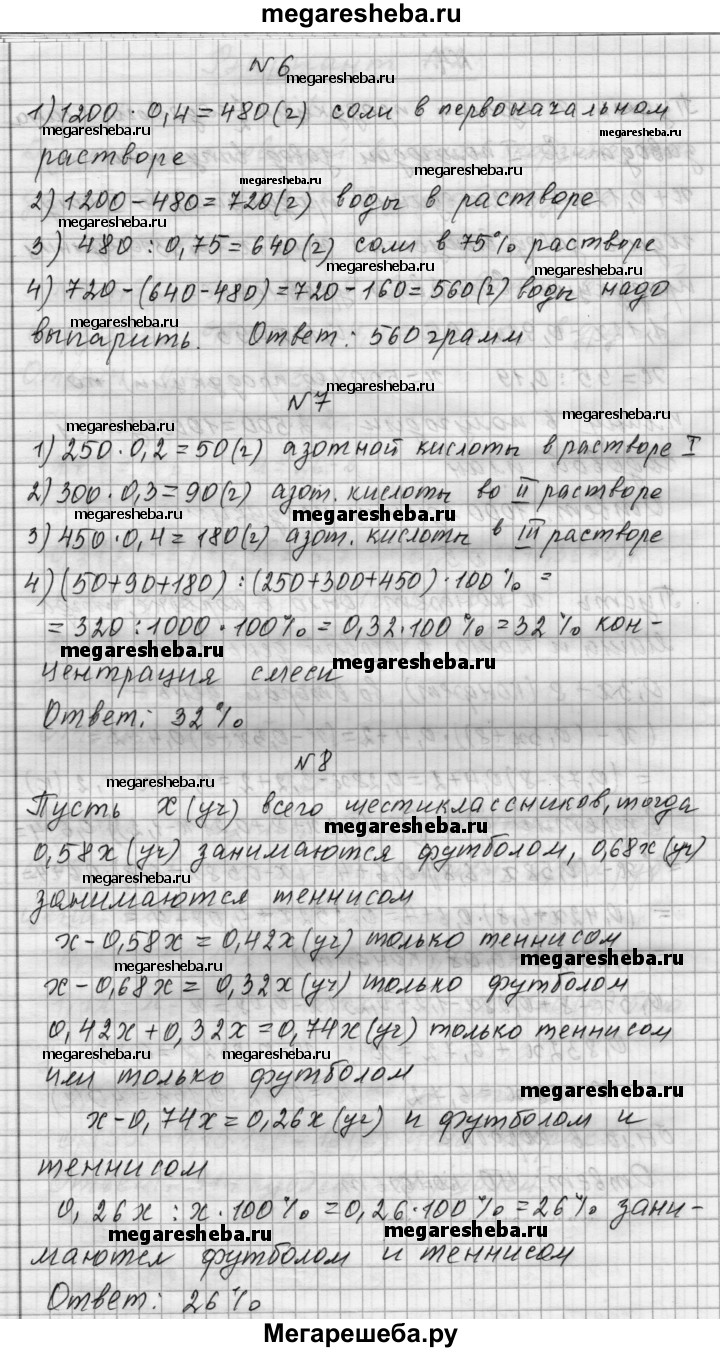 megaresheba.ru
№6
megaresheba.ru
1) 1200 · 0,4 = 480 (г) соли в первоначальном
megaresheba.ru megaresheba.ru
растворе
megaresheba.ru
2) 1200 - 480 = 720 (г) воды в растворе
megaresheba.ru
3) 480 : 0,75 = 640 (г) соли в 75% растворе
megaresheba.ru megaresheba.ru
4) 720 - (640 - 480) = 720 - 160 = 560 (г) воды надо
megaresheba.ru
выпарить. Ответ: 560 грамм
megaresheba.ru
№7
megaresheba.ru megaresheba.ru
1) 250 · 0,2 = 50 (г) азотной кислоты в растворе I
megaresheba.ru
2) 300 · 0,3 = 90 (г) азот. кислоты во II растворе
megaresheba.ru
3) 450 · 0,4 = 180 (г) азот. кислоты в III растворе
megaresheba.ru
4) (50+90+180) : (250+300+450) · 100% =
= 320 : 1000 · 100% = 0,32 · 100% = 32% кон-
megaresheba.ru megaresheba.ru
центрация смеси
Ответ: 32%
№8
megaresheba.ru
Пусть x (уч) всего шестиклассников, тогда
megaresheba.ru
0,58x (уч) занимаются футболом, 0,68x (уч)
megaresheba.ru
занимаются теннисом
x - 0,58x = 0,42x (уч) только теннисом
megaresheba.ru megaresheba.ru
x - 0,68x = 0,32x (уч) только футболом
0,42x + 0,32x = 0,74x (уч) только теннисом
megaresheba.ru megaresheba.ru
или только футболом
megaresheba.ru
x - 0,74x = 0,26x (уч) и футболом и
теннисом
0,26x : x · 100% = 0,26 · 100% = 26% зани-
megaresheba.ru megaresheba.ru
маются футболом и теннисом
Ответ: 26%
Мегарешеба.ру